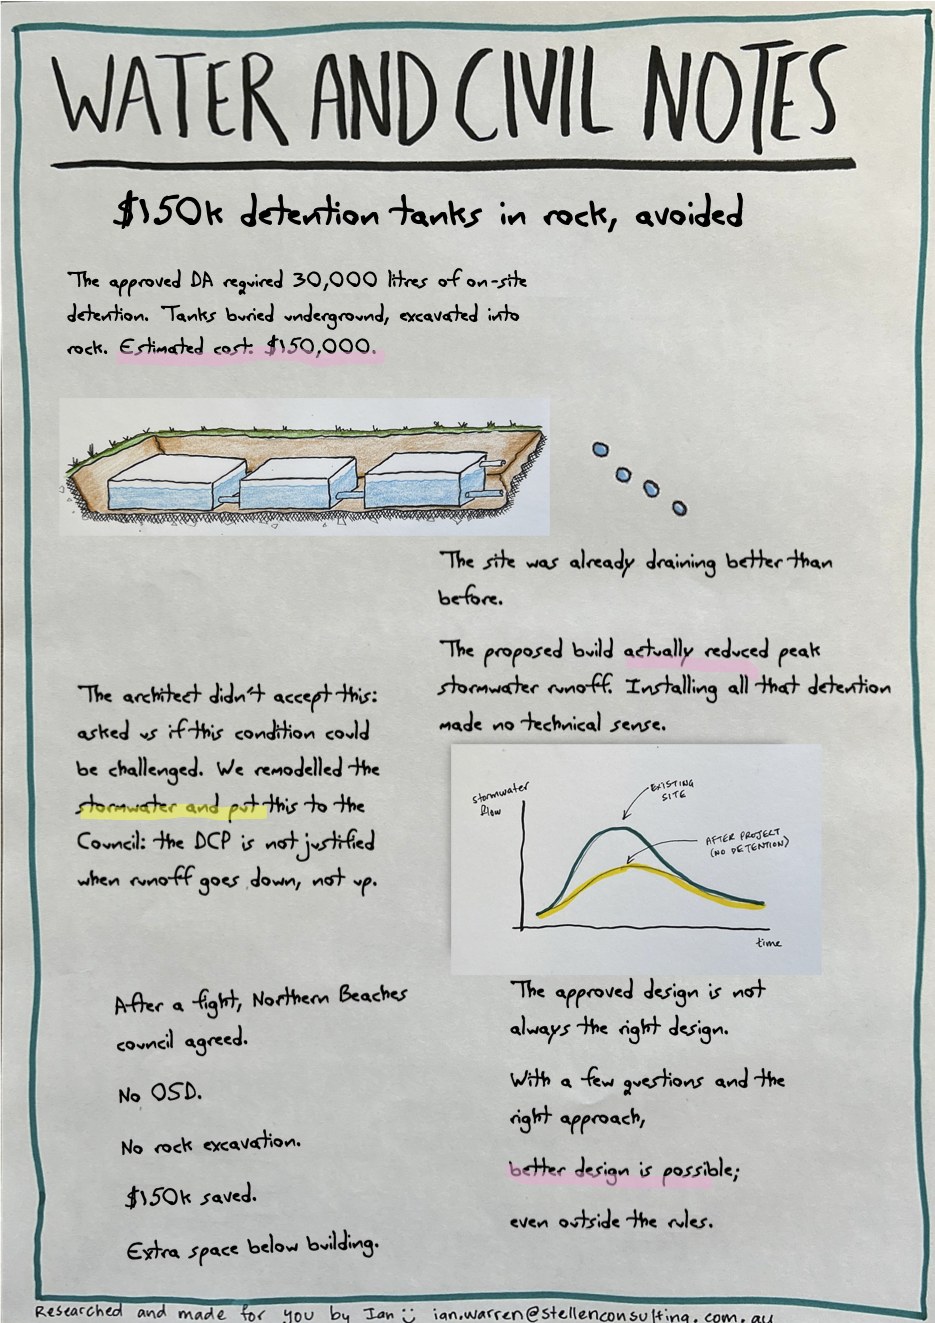 WATER AND CIVIL NOTES
$150k detention tanks in rock, avoided
The approved DA required 30,000 litres of on-site
detention. Tanks buried underground, excavated into
rock. Estimated cost: $150,000.
The site was already draining better than
before.
The proposed build actually reduced peak
stormwater runoff. Installing all that detention
made no technical sense.
The architect didn't accept this:
asked us if this condition could
be challenged. We remodelled the
stormwater and put this to the
Council: the DCP is not justified
when runoff goes down, not up.
stormwater
flow
EXISTING
SITE
AFTER PROJECT
(NO DETENTION)
time
After a fight, Northern Beaches
council agreed.
No OSD.
No rock excavation.
$150k saved.
Extra space below building.
The approved design is not
always the right design.
With a few questions and the
right approach,
better design is possible;
even outside the rules.
Researched and made for you by Ian :) ian.warren@stellenconsulting.com.au